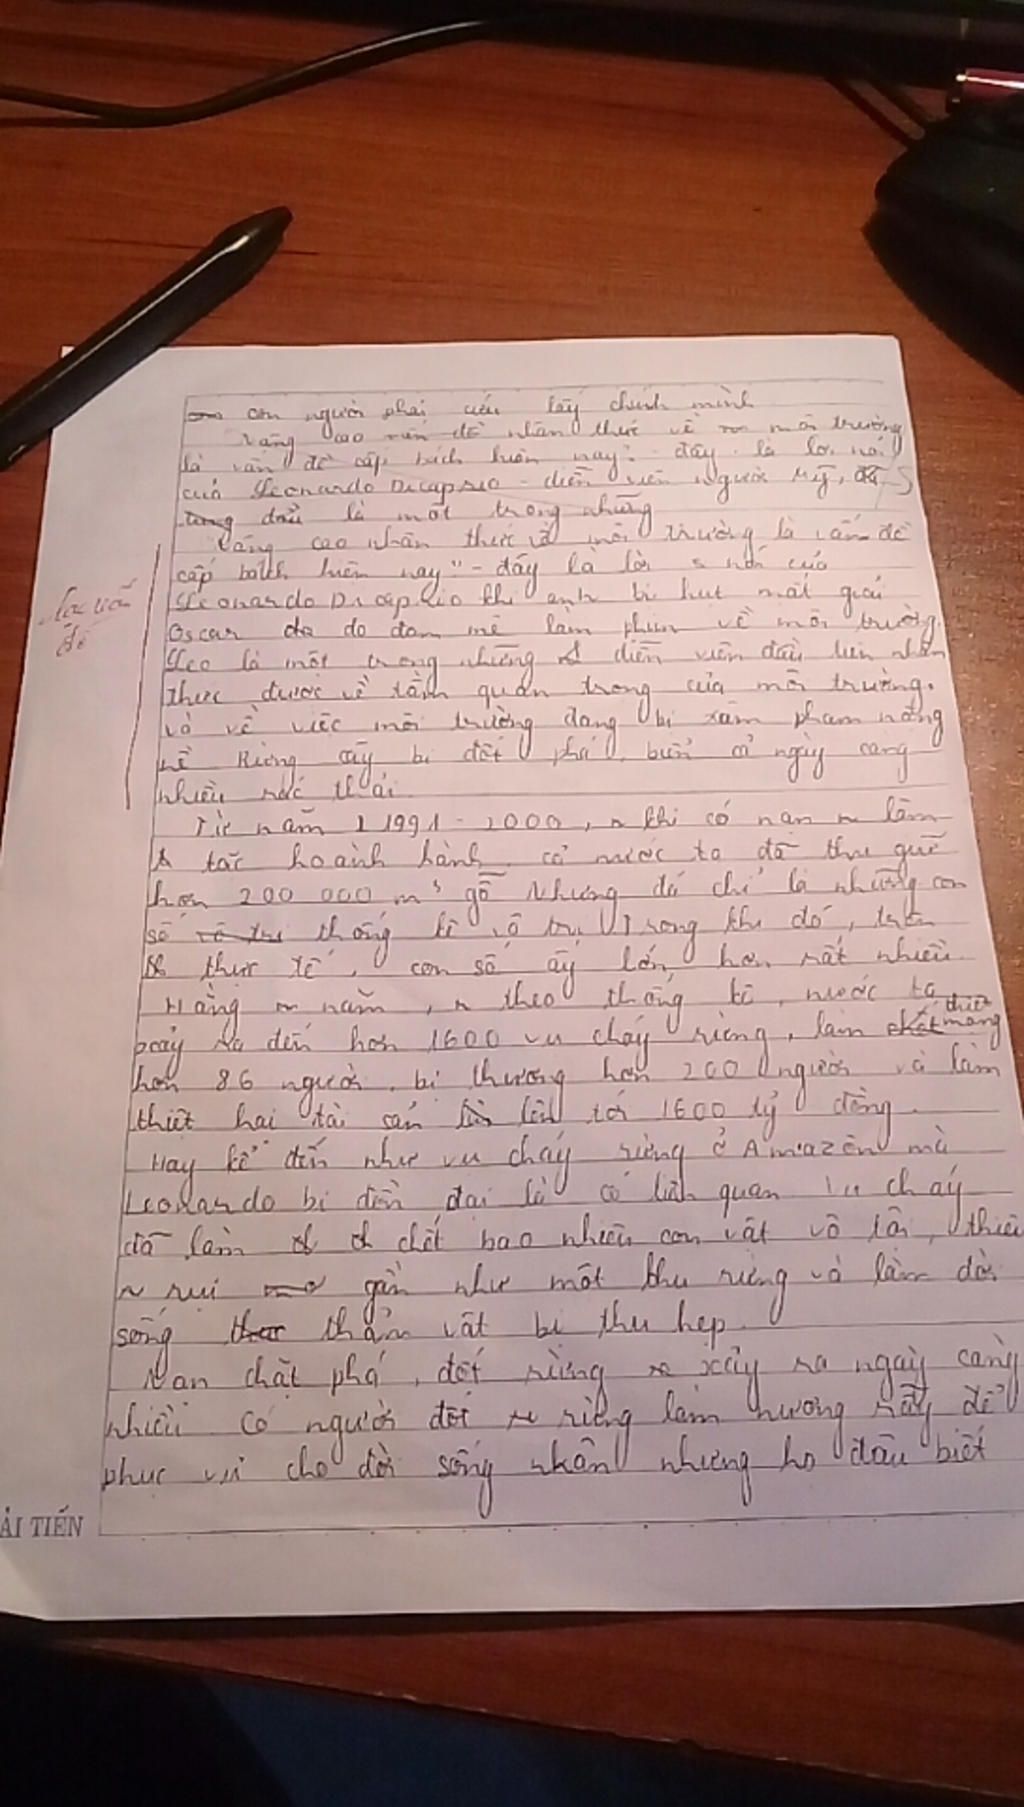 con người phải cứu lấy chính mình
nâng cao vấn đề nhân thức về môi trường
là vấn đề cấp bách hiện nay". đây là lời nói
của Leonardo Dicaprio - diễn viên người Mỹ,
đầu là một trong những
nâng cao nhân thức về môi trường là vấn đề
cấp bách hiện nay" - đây là lời s nói của
Leonardo Dicaprio khi anh bị hut mất giải
Oscar do đam mê làm phim về môi trường.
Leo là một trong những diễn viên đầu tiên nhân
thức được về tầm quan trong của môi trường.
và về việc môi trường đang bi xâm pham nặng
nề Rừng cây bi đốt phá, biển cả ngày càng
nhiều rác thải.
lac vấn
đề
Từ năm 1991 - 2000, khi có nan lâm
tăc hoành hành, cả nước ta đã thu giữ
hơn 200 000 m³ gỗ Nhưng đó chỉ là những con
số thống kê vô tri Trong khi đó, trên
thưc tế, con số ấy lớn hơn rất nhiều.
Hằng năm, theo thống kê, nước ta
xảy ra đến hơn 1600 vu cháy rừng, làm thiệt mang
hơn 86 người, bi thương hơn 200 người và làm
thiêt hai tài sản lên tới 1600 tỷ đồng.
Hay kể đến như vu cháy rừng ở Amazôn mà
Leonardo bi đồn đai là có liên quan Vu cháy
đã làm chết bao nhiêu con vât vô tôi, thiêu
rui gần như một khu rừng và làm đời
sống thản vât bi thu hep.
Nan chặt phá, đốt rừng xảy ra ngày càng
nhiều Có người đốt rừng làm nương rẫy để
phuc vu cho đời sống nhân nhưng ho đâu biết
ẢI TIẾN